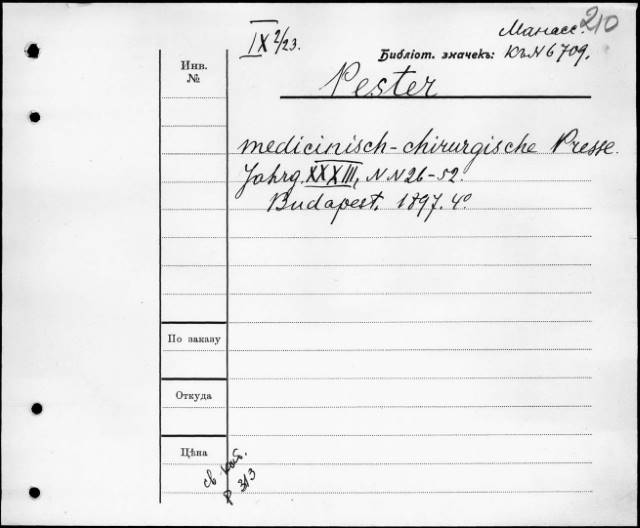 210
IX 2/23.
Манасс.
Библіот. значекъ: Къ N 6709.
Инв.
№
Pester
medicinisch-chirurgische Presse.
Jahrg. XXXIII, NN 26-52.
Budapest. 1897. 4º
По заказу
Откуда
Цѣна
св. каб.
р 313